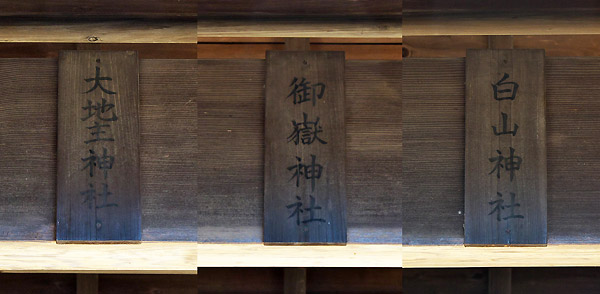 大地主神社
御嶽神社
白山神社